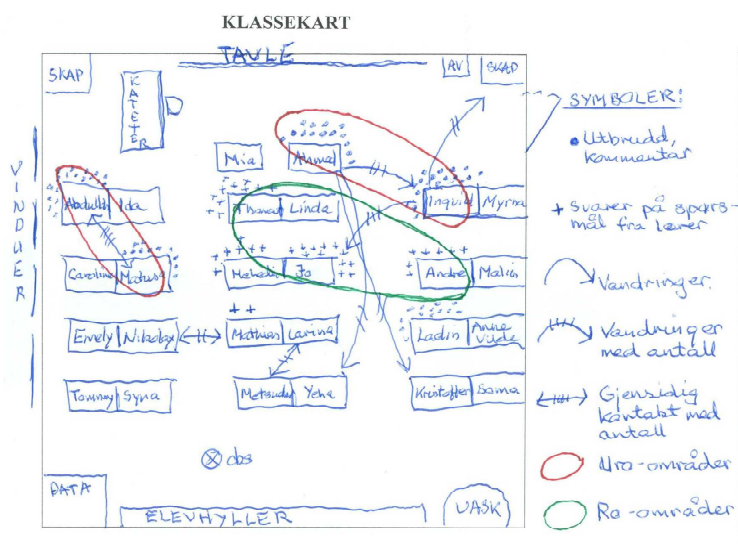 KLASSEKART
TAVLE
SKAP
KATETER
AV
SKAP
VINDUER
Mia
Anma
Abdullh Ida
Thomas Linda
Ingvid Myrna
Caroline Matusa
Jo
André Malin
Emely Nikolay
Mathias Larina
Ladin Anne
Tommy Syna
Yeha
Kristoffer Soma
obs
DATA
ELEVHYLLER
VASK
SYMBOLER:
Utbrudd,
kommentar
+ svarer på spørs-
mål fra lærer
Vandringer
Vandringer
med antall
Gjensidig
kontakt med
antall
Uro-områder
Ro-områder